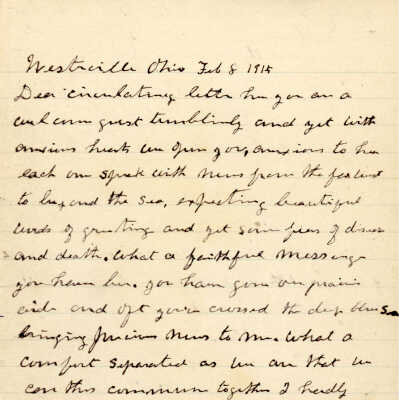 Westville Ohio Feb 8 1915
Dear circulating letter how you are a
welcom guest tremblingly and yet with
anxious hearts we open you, anxious to hear
each one speak with news from the far west
to beyond the sea, expecting beautiful
words of greeting and yet some fears of disease
and death. What a faithful messenge
you have been. you have gone on prairie
and oft you've crossed the deep blue sea
bringing precious news to me. What a
comfort separated as we are that we
can thus commune together I hardly